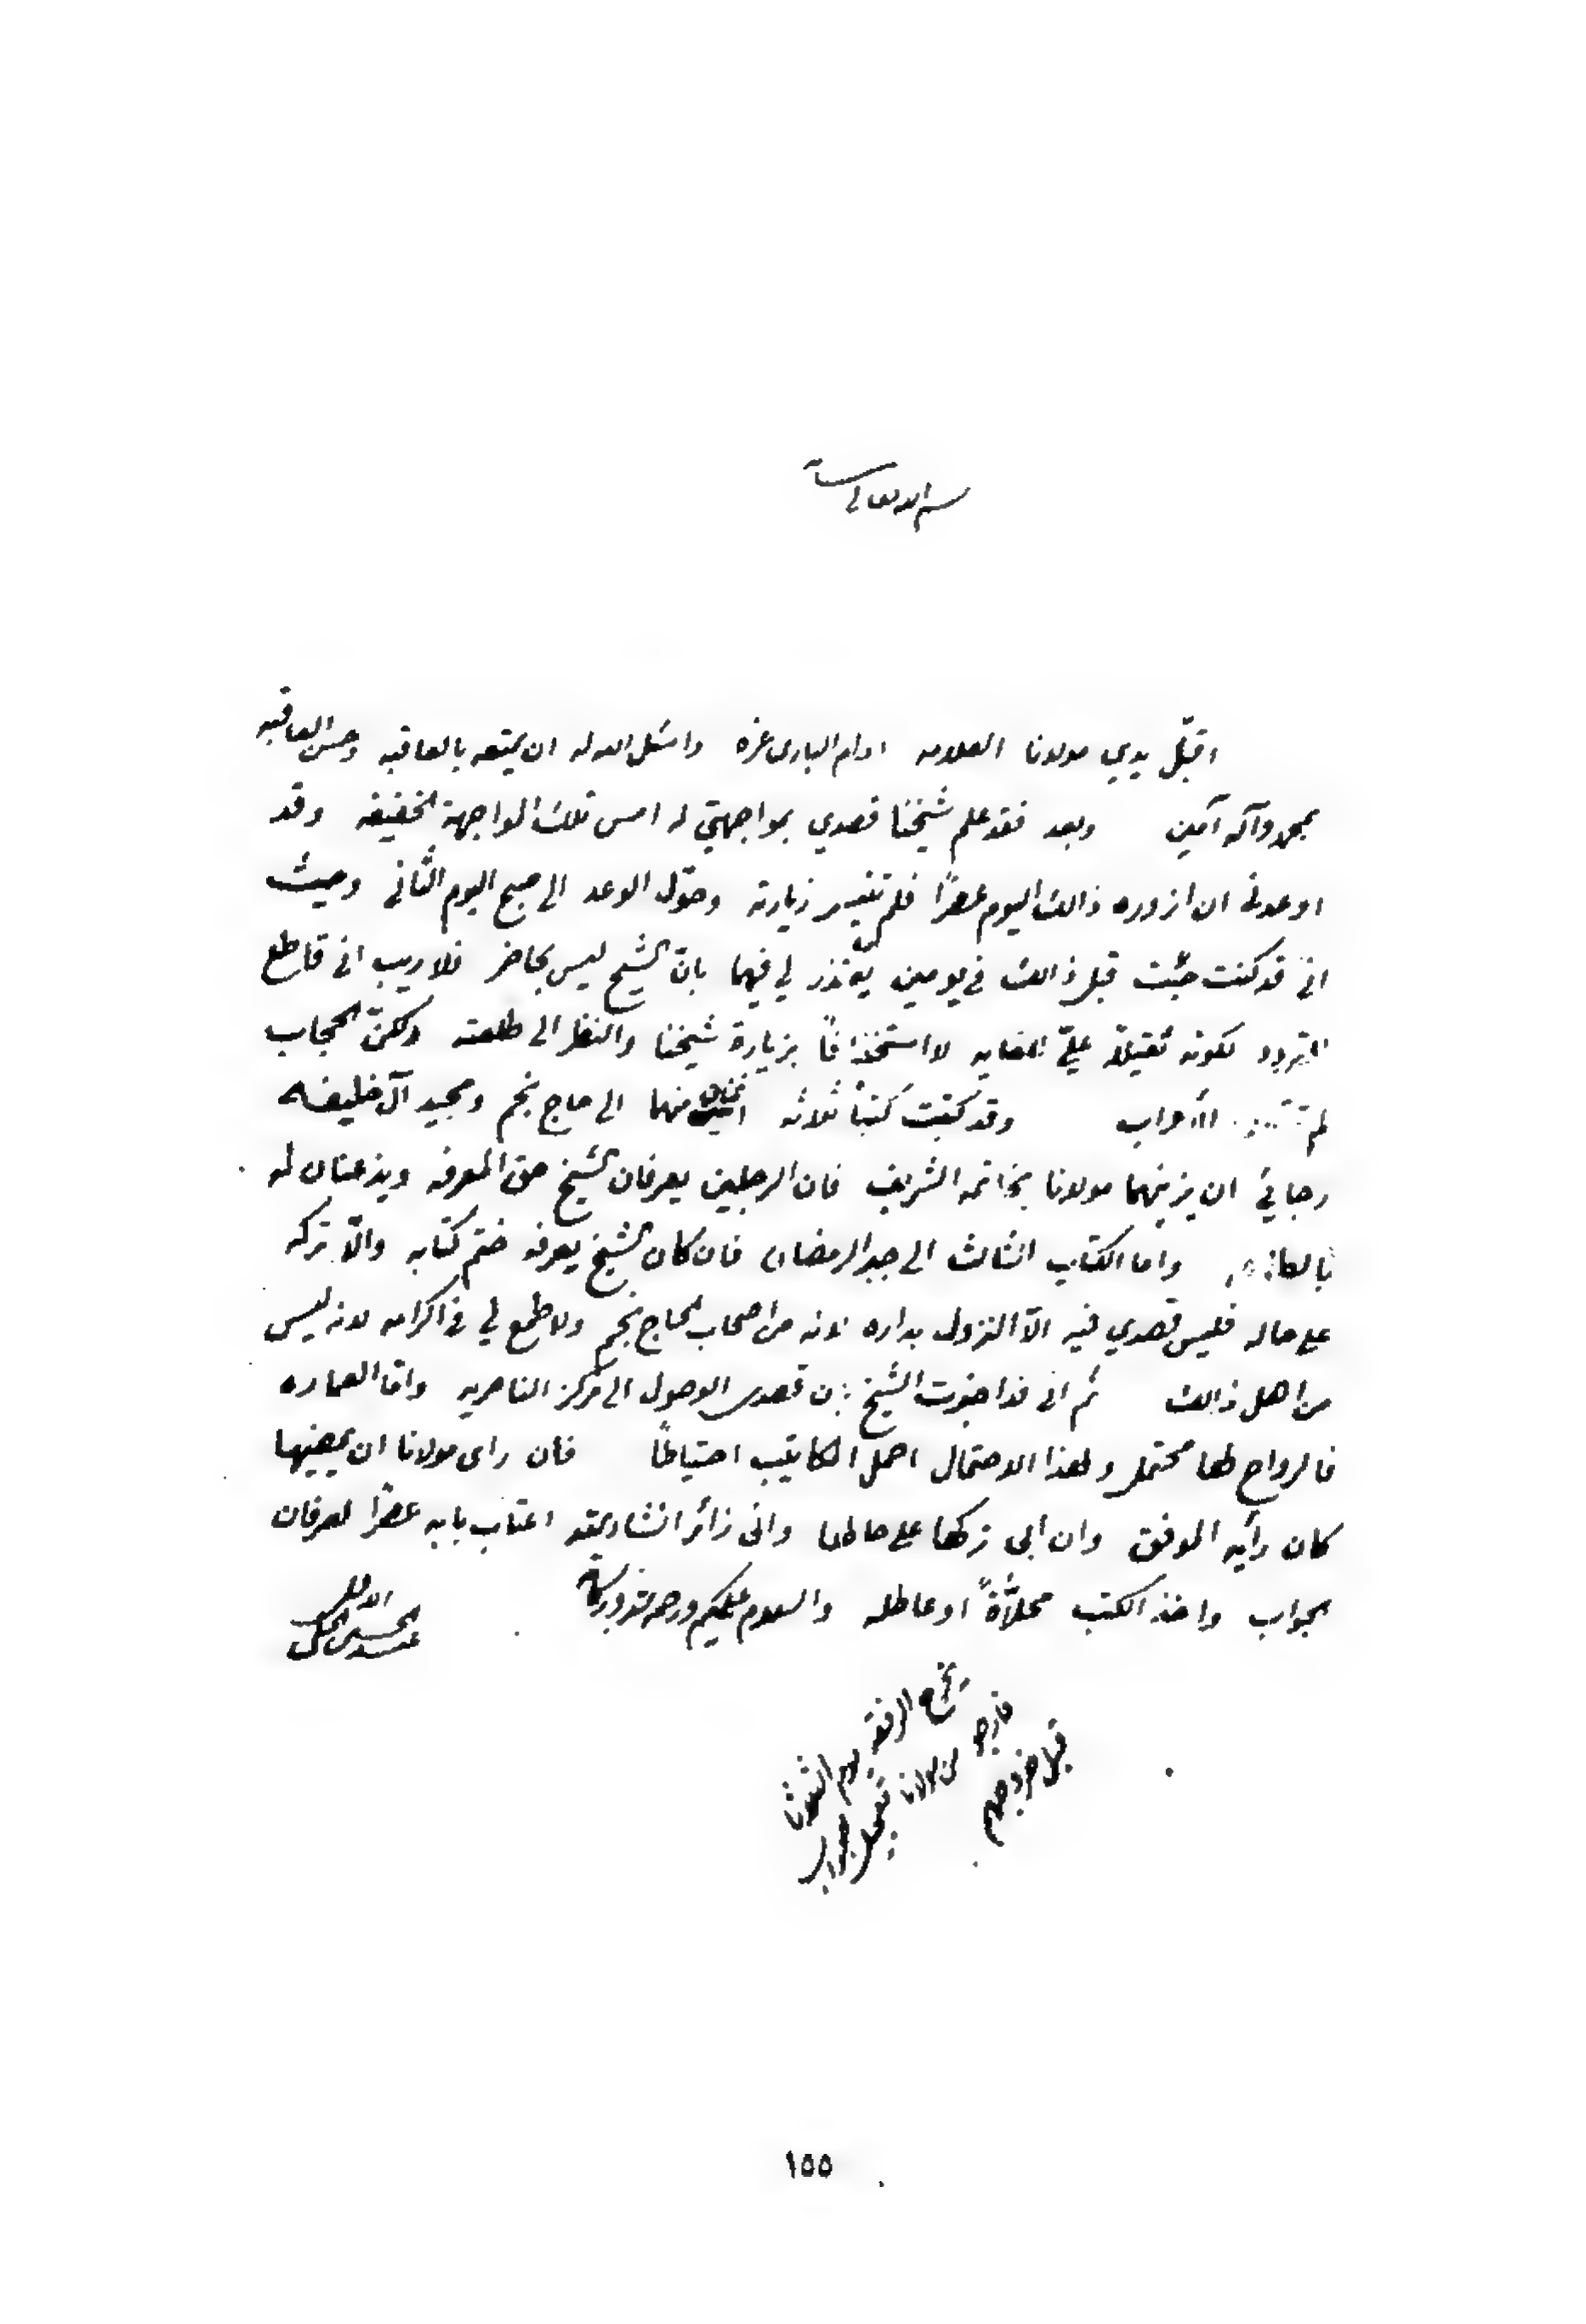 بسم الله تعالى شأنه
اقبّل يدي مولانا العلامه ادام البارى عزه واسئل الله له ان يمتعه بالعافيه وحسن العاقبه
بمحمد وآله آمين وبعد فقد علم شيخنا قصدي بمواجهتي له امس تلك المواجهة الخفيفه وقد
اوعدنى ان ازوره ذالك اليوم عصرًا فلم تتيسر زيارته وحوّل الوعد الى صبح اليوم الثانى وحيث
انى قد كنت جئت قبل ذالك فى يومين يعتذر لي فيهما بانّ الشيخ ليس بحاضر فلا ريب انى قاطع
التردد لكونه ثقيلاً عليّ للغايه لا استخفافاً بزيارة شيخنا والنظر الى طلعته ولكنّ الحجاب
لم الأبواب وقد كتبت كتباً ثلاثه اثنان منهما الى حاج نجم ومجيد آل خليفه
رجائي ان يزينهما مولانا بخاتمه الشريف فان الرجلين يعرفان الشيخ حق المعرفه ويذعنان له
واما الكتاب الثالث الى جبر الرمضان فان كان الشيخ يعرفه ختم كتابه والّا تركه
على حاله فليس قصدي فيه الّا النزول بداره لانه من اصحاب الحاج نجم ولا طمع لي فى اكرامه لانه ليس
من اهل ذالك ثم انى قد اخبرت الشيخ بان قصدى الوصول الى مركز الناصريه وامّا العماره
فالرواح لها محتمل ولهذا الاحتمال احمل المكاتيب احتياطًا فان راى مولانا ان يمضيها
كان رأيه الموفق وان ابى تركها على حالها وانى زائر انشاء الله اعتاب بابه عصرًا لعرفان
الجواب واخذ الكتب محلاّةً او عاطله والسلام عليكم ورحمة الله وبركاته
الاقل
عبد الحسين الحلي
قبل خروجهم
فارجو من مولانا تعجيل الجواب